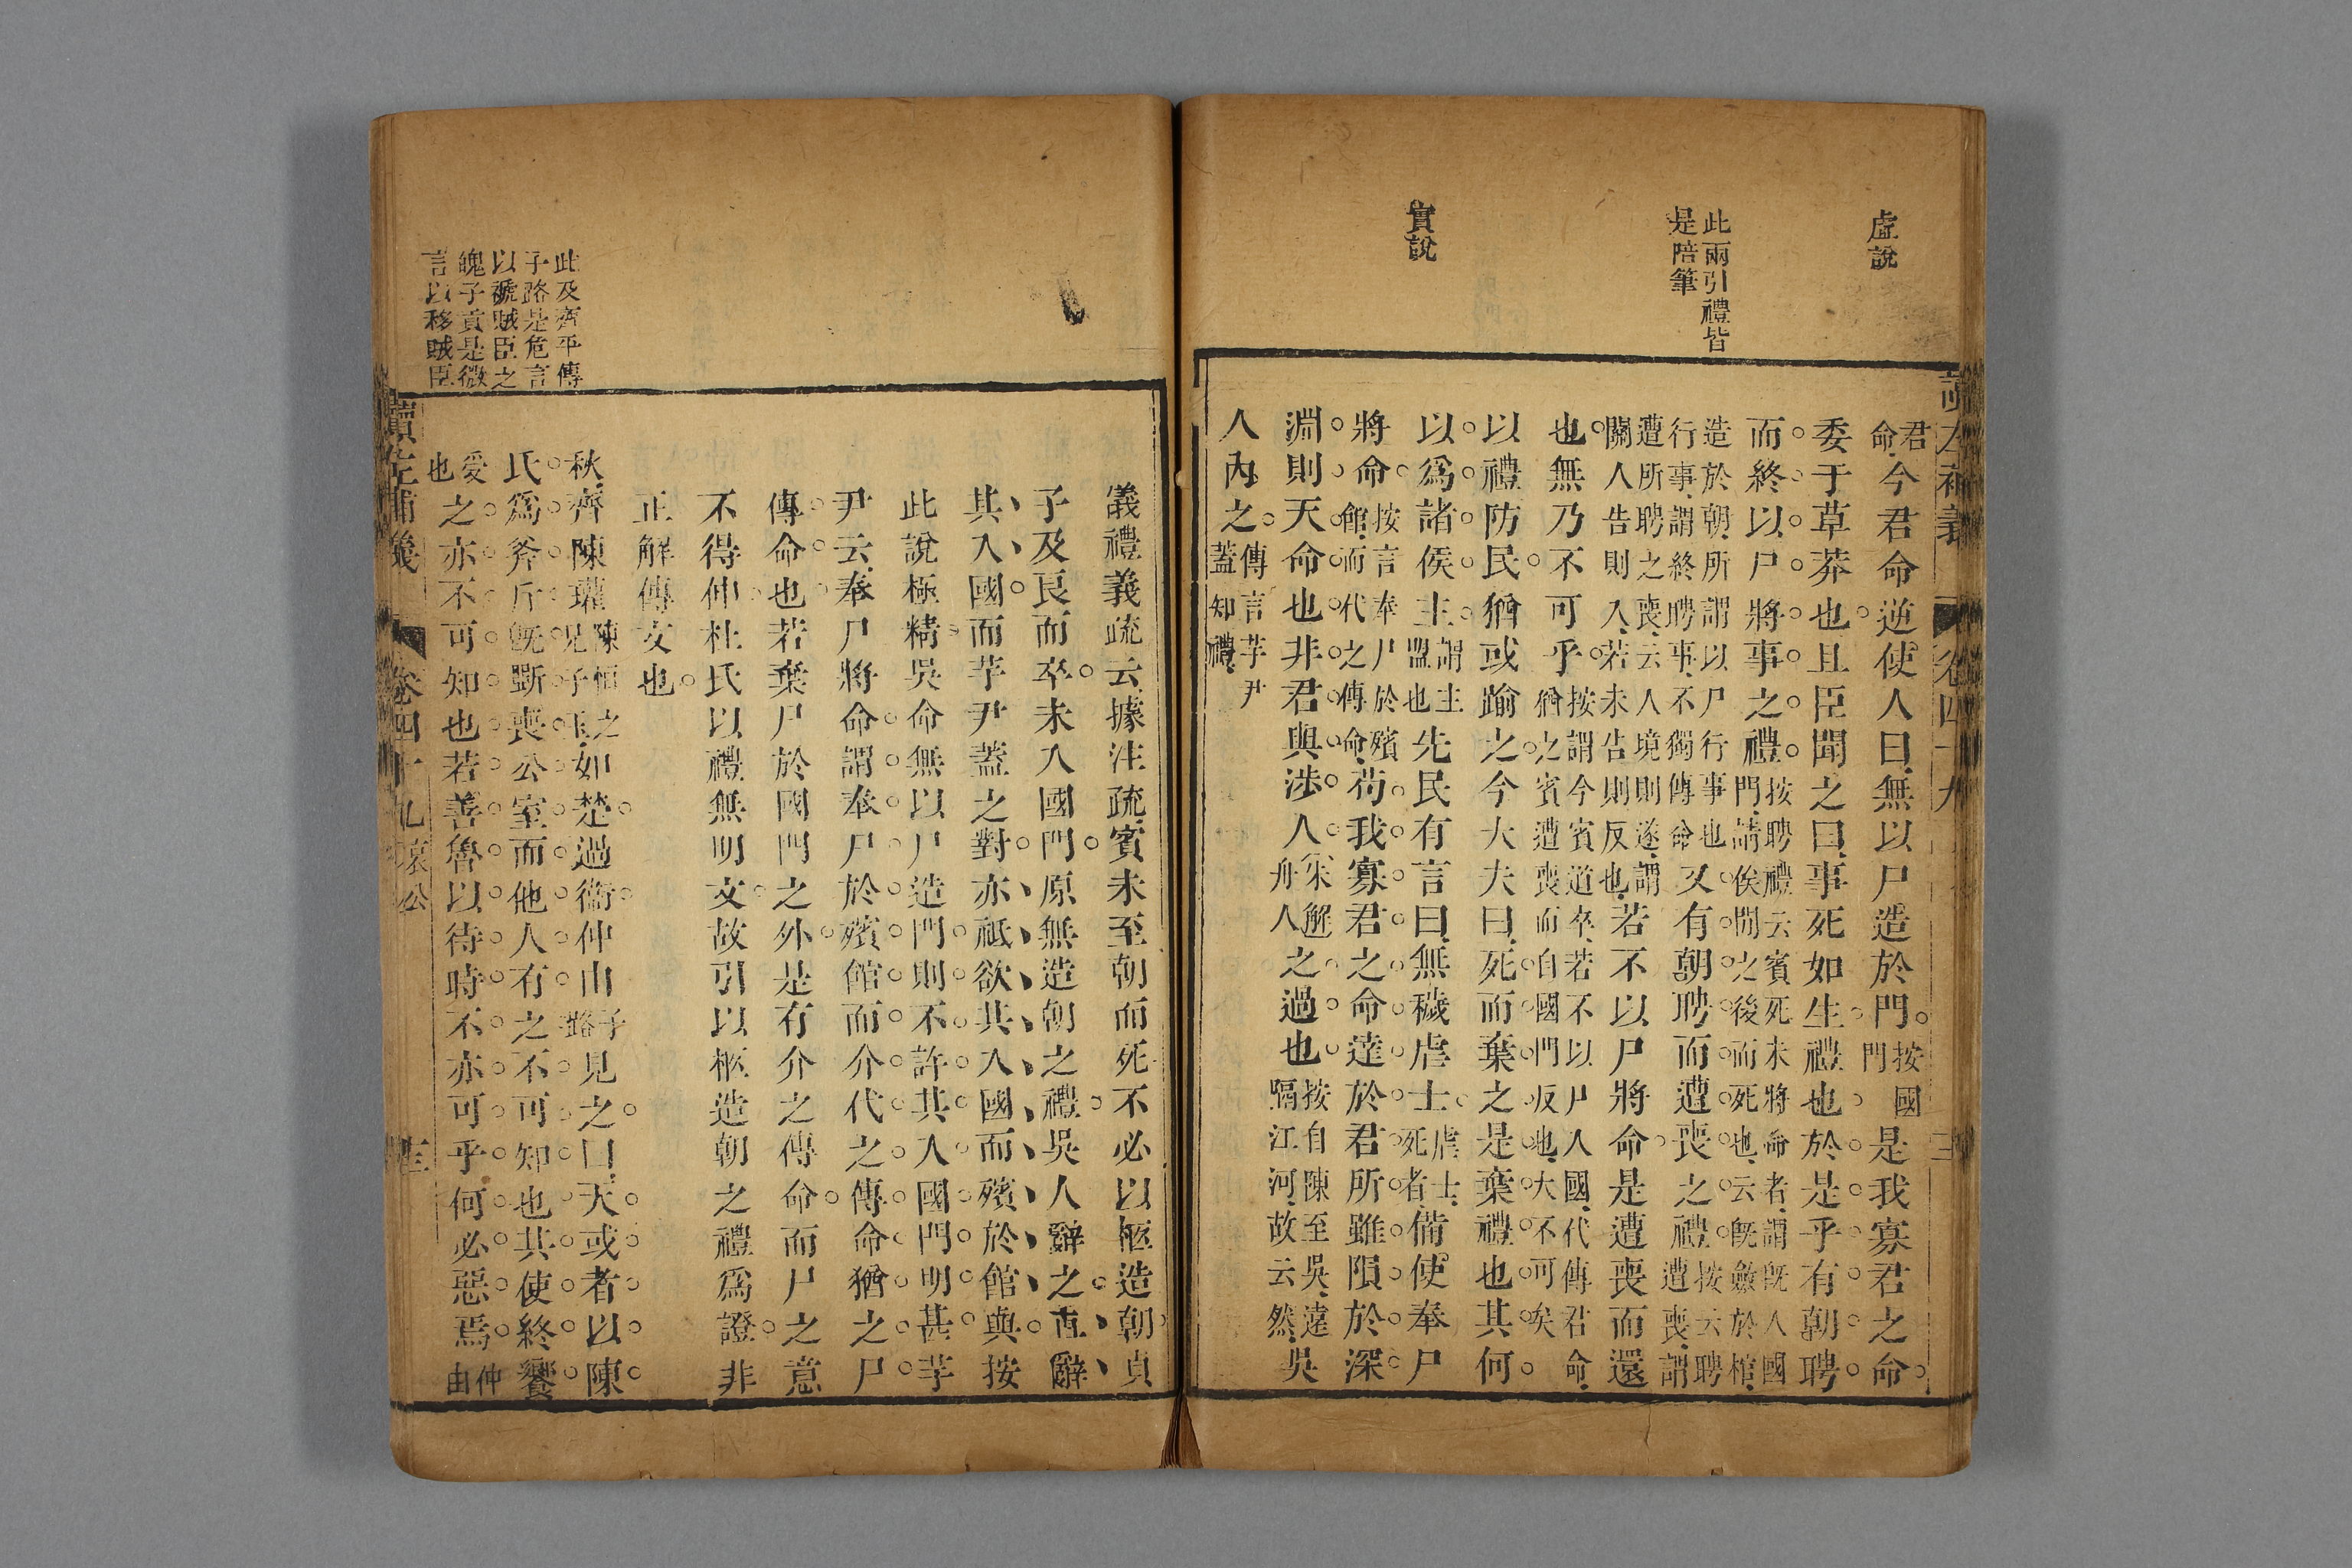 虛說
此兩引禮皆
是陪筆
實說
君
命
今君命逆使人曰無以尸造於門
按國
門
是我寡君之命
委于草莽也且臣聞之曰事死如生禮也於是乎有朝聘
而終以尸將事之禮
按聘禮云賓死未將命者謂旣入國
門請俟閒之後而死也云旣斂於棺
造於朝所謂以尸行事也
行事謂終聘事不獨傳命
又有朝聘而遭喪之禮
按云聘
遭喪謂
遭所聘之喪云人境則遂謂
關人告則入若未告則反也
若不以尸將命是遭喪而還
也無乃不可乎
按謂今賓道卒若不以尸入國代傳君命
猶之賓遭喪而自國門反也大不可矣
以禮防民猶或踰之今大夫曰死而棄之是棄禮也其何
以爲諸侯主
謂主
盟也
先民有言曰無穢虐士
虐士
死者
備使奉尸
將命
按言奉尸於殯
館而代之傳命
苟我寡君之命達於君所雖隕於深
淵則天命也非君與涉人
朱解
舟人
之過也
按自陳至吳遠
隔江河故云然
吳
人內之
傳言芋尹
蓋知禮
讀左補義
卷四十九
儀禮義疏云據注疏賓未至朝而死不必以柩造朝貞
子及良而卒未入國門原無造朝之禮吳人辭之直辭
其入國而芋尹蓋之對亦祗欲其入國而殯於館與按
此說極精吳命無以尸造門則不許其入國門明甚芋
尹云奉尸將命謂奉尸於殯館而介代之傳命猶之尸
傳命也若棄尸於國門之外是有介之傳命而尸之意
不得仲杜氏以禮無明文故引以柩造朝之禮爲證非
正解傳文也
秋齊陳瓘
陳恒之
兄子玉
如楚過衞仲由
子
路
見之曰天或者以陳
氏爲斧斤旣斲喪公室而他人有之不可知也其使終饗
之亦不可知也若善魯以待時不亦可乎何必惡焉
仲
由
受
也
此及齊平傳
子路是危言
以褫賊臣之
魄子貢是微
言以移賊臣
讀左補義
卷四十九哀公